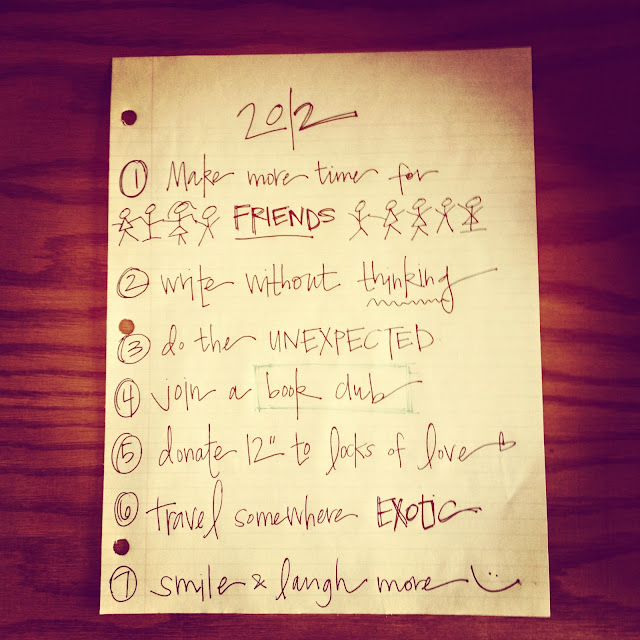 2012
① Make more time for
FRIENDS
② write without thinking
③ do the UNEXPECTED
④ join a book club
⑤ donate 12" to locks of love
⑥ travel somewhere EXOTIC
⑦ smile & laugh more